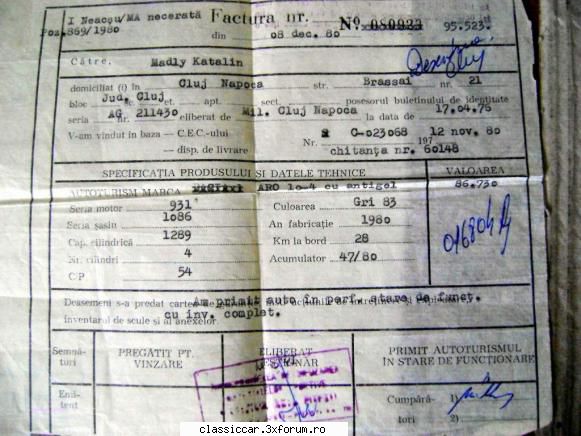 I Neacșu/MA necerată Factura nr. No 080023 95.523
Poz.869/1980 din 08 dec. 80
Către, Madly Katalin
domiciliat (i) în Cluj Napoca str. Brassai nr. 21
bloc Jud. Cluj et. apt. sect. posesorul buletinului de identitate
seria AG nr. 211430 eliberat de Mil. Cluj Napoca la data de 17.04.76
V-am vîndut în baza — C.E.C.-ului C-023068 12 nov. 80
— disp. de livrare Nr. chitanța nr. 60148 197
SPECIFICAȚIA PRODUSULUI ȘI DATELE TEHNICE VALOAREA
AUTOTURISM MARCA ARO 10-4 cu antigel 86.730
Seria motor 931 Culoarea Gri 83
Seria șasiu 1086 An fabricație 1980
Cap. cilindrică 1289 Km la bord 28
Nr. cilindri 4 Acumulator 47/80
CP 54
Am primit auto în perf. stare de funcț.
Deasemeni s-a predat cartea de
cu inv. complet.
inventarul de scule și al anexelor.
Semnături PREGĂTIT PT. VINZARE ELIBERAT PRIMIT AUTOTURISMUL IN STARE DE FUNCȚIONARE
Emitent Cumpărători 1) 2)
classiccar.3xforum.ro